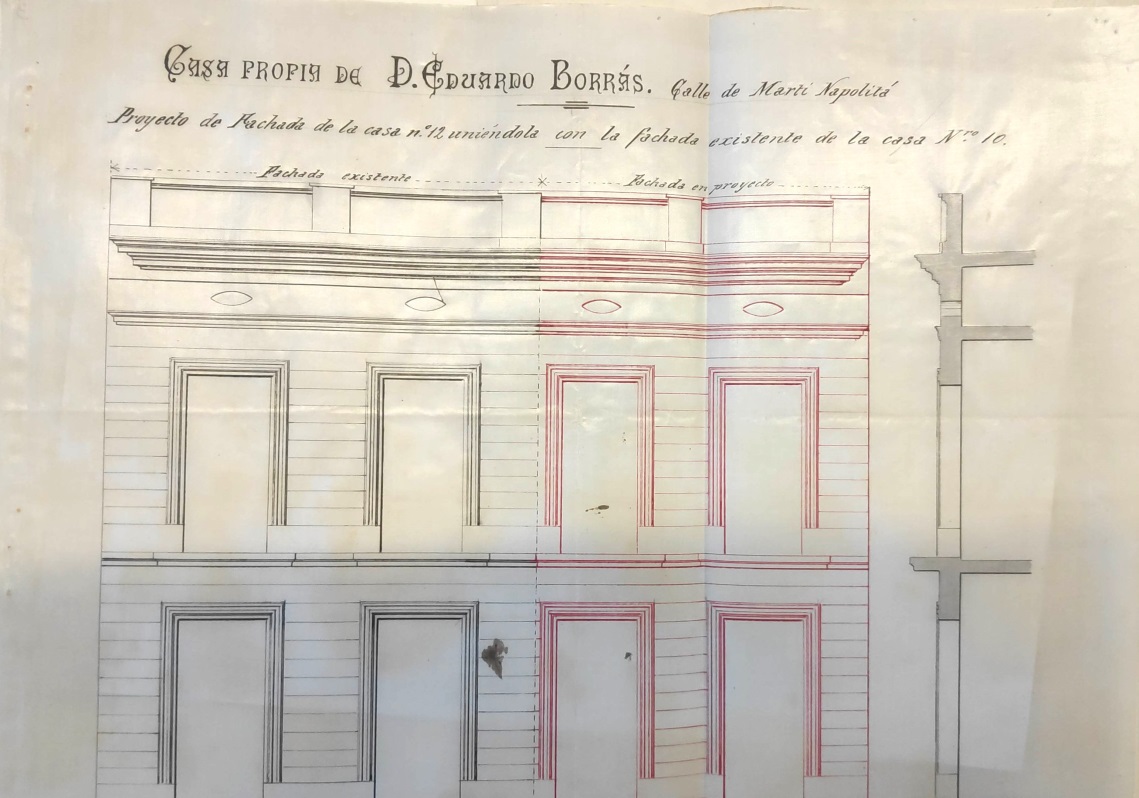 Casa propia de D. Eduardo Borrás. Calle de Martí Napolitá
Proyecto de Fachada de la casa n.º 12 uniéndola con la fachada existente de la casa Nro. 10.
Fachada existente Fachada en proyecto